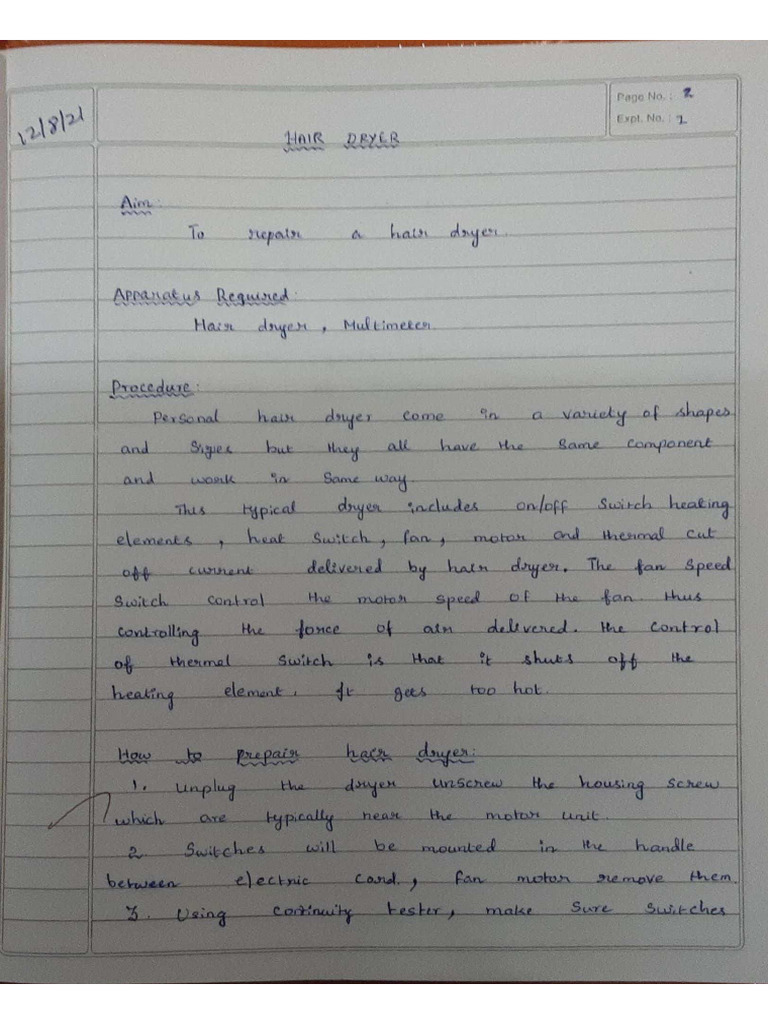 12/8/21
Page No. : 2
Expt. No. : 1
HAIR DRYER
Aim:
To repair a hair dryer.
Apparatus Required:
Hair dryer, Multimeter
Procedure:
Personal hair dryer come in a variety of shapes
and Sizes but they all have the same component
and work in same way.
This typical dryer includes on/off switch heating
elements, heat switch, fan, motor and thermal cut
off current delivered by hair dryer. The fan speed
switch control the motor speed of the fan thus
controlling the force of air delivered. The control
of thermal switch is that it shuts off the
heating element. It gees too hot.
How to prepair hair dryer:
1. Unplug the dryer unscrew the housing screw
which are typically near the motor unit.
2 Switches will be mounted in the handle
between electric cord., fan motor remove them.
3. Using continuity tester, make sure switches